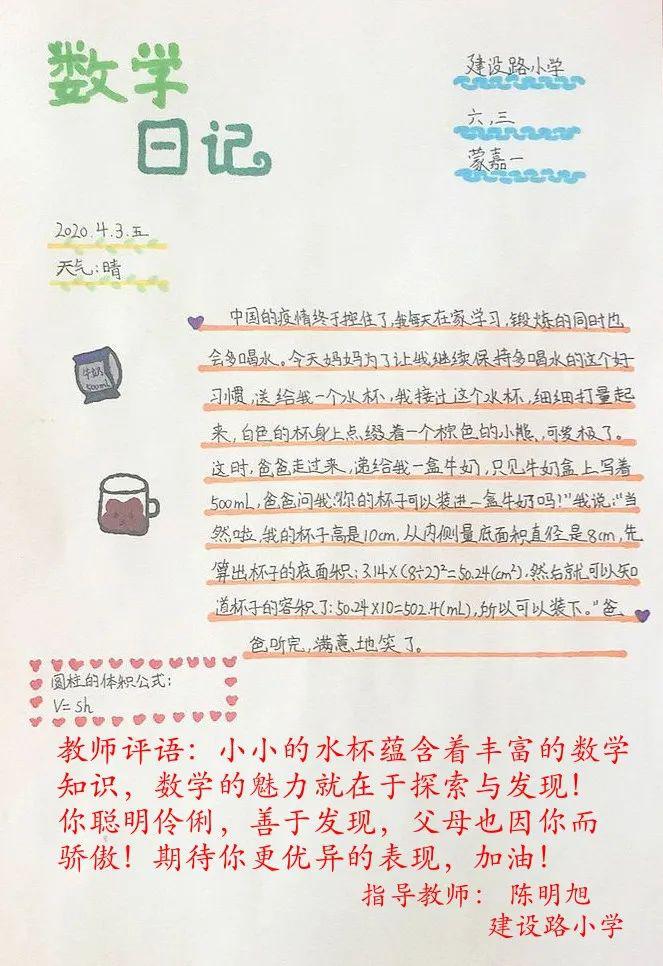 数学
日记
建设路小学
六.三
蒙嘉一
2020.4.3.五
天气:晴
中国的疫情终于控住了,我每天在家学习,锻炼的同时也
会多喝水。今天妈妈为了让我继续保持多喝水的这个好
习惯,送给我一个水杯,我接过这个水杯,细细打量起
来,白色的杯身上点缀着一个棕色的小熊,可爱极了。
这时,爸爸走过来,递给我一盒牛奶,只见牛奶盒上写着
500mL,爸爸问我:“你的杯子可以装进一盒牛奶吗!”我说:“当
然啦,我的杯子高是10cm,从内侧量底面积直径是8cm,先
算出杯子的底面积:3.14×(8÷2)²=50.24(cm²),然后就可以知
道杯子的容积了:50.24×10=502.4(mL),所以可以装下。”爸
爸听完,满意地笑了。
牛奶
500mL
圆柱的体积公式:
V=sh
教师评语:小小的水杯蕴含着丰富的数学
知识,数学的魅力就在于探索与发现!
你聪明伶俐,善于发现,父母也因你而
骄傲!期待你更优异的表现,加油!
指导教师: 陈明旭
建设路小学